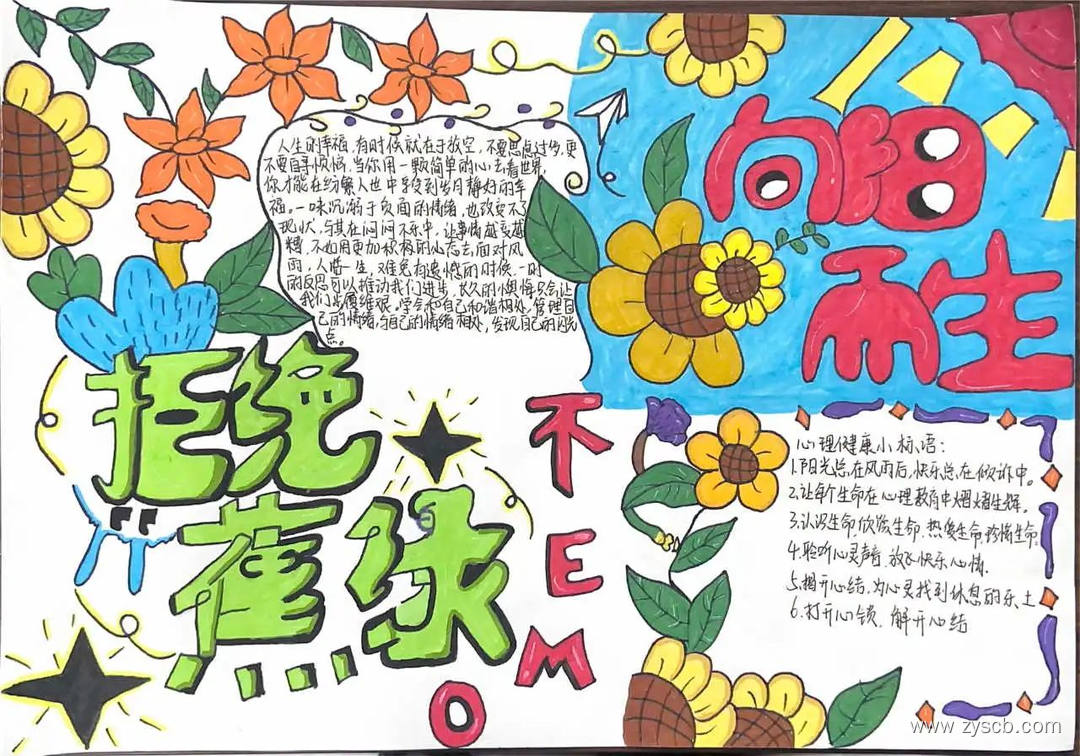 向阳
而生
人生的幸福,有时候就在于放空,不要思虑过多,更
不要自寻烦恼,当你用一颗简单的心去看世界,
你才能在纷繁人世中寻得到岁月静好的幸
福。一味沉溺于负面的情绪,也改变不了
现状,与其在闷闷不乐中,让事情越变越
糟,不如用更加积极的心态去面对风
雨,人活一生,难免有遗憾的时候,一时
的反思可以推动我们进步,长久的懊悔只会让
我们步履维艰,学会和自己和谐相处,管理自
己的情绪,与自己的情绪相处,发现自己的闪光
点。
拒绝
蕉绿
不
E
M
O
心理健康小标语:
1.阳光总在风雨后,快乐总在倾诉中。
2.让每个生命在心理教育中熠熠生辉。
3.认识生命,欣赏生命,热爱生命,珍惜生命。
4.聆听心灵声音,放飞快乐心情.
5.揭开心结,为心灵找到休息的乐土
6.打开心锁,解开心结
www.zyscb.com